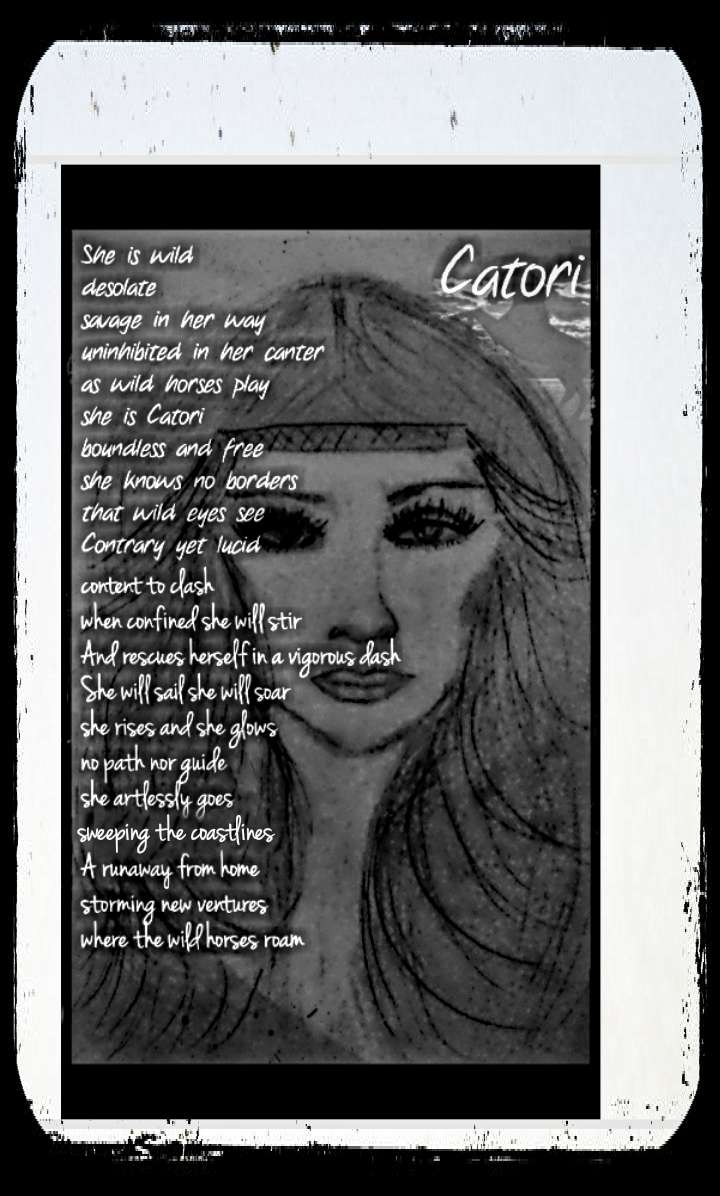 Catori
She is wild
desolate
savage in her way
uninhibited in her canter
as wild horses play
she is Catori
boundless and free
she knows no borders
that wild eyes see
Contrary yet lucid
content to clash
when confined she will stir
And rescues herself in a vigorous dash
She will sail she will soar
she rises and she glows
no path nor guide
she artlessly goes
sweeping the coastlines
A runaway from home
storming new ventures
where the wild horses roam